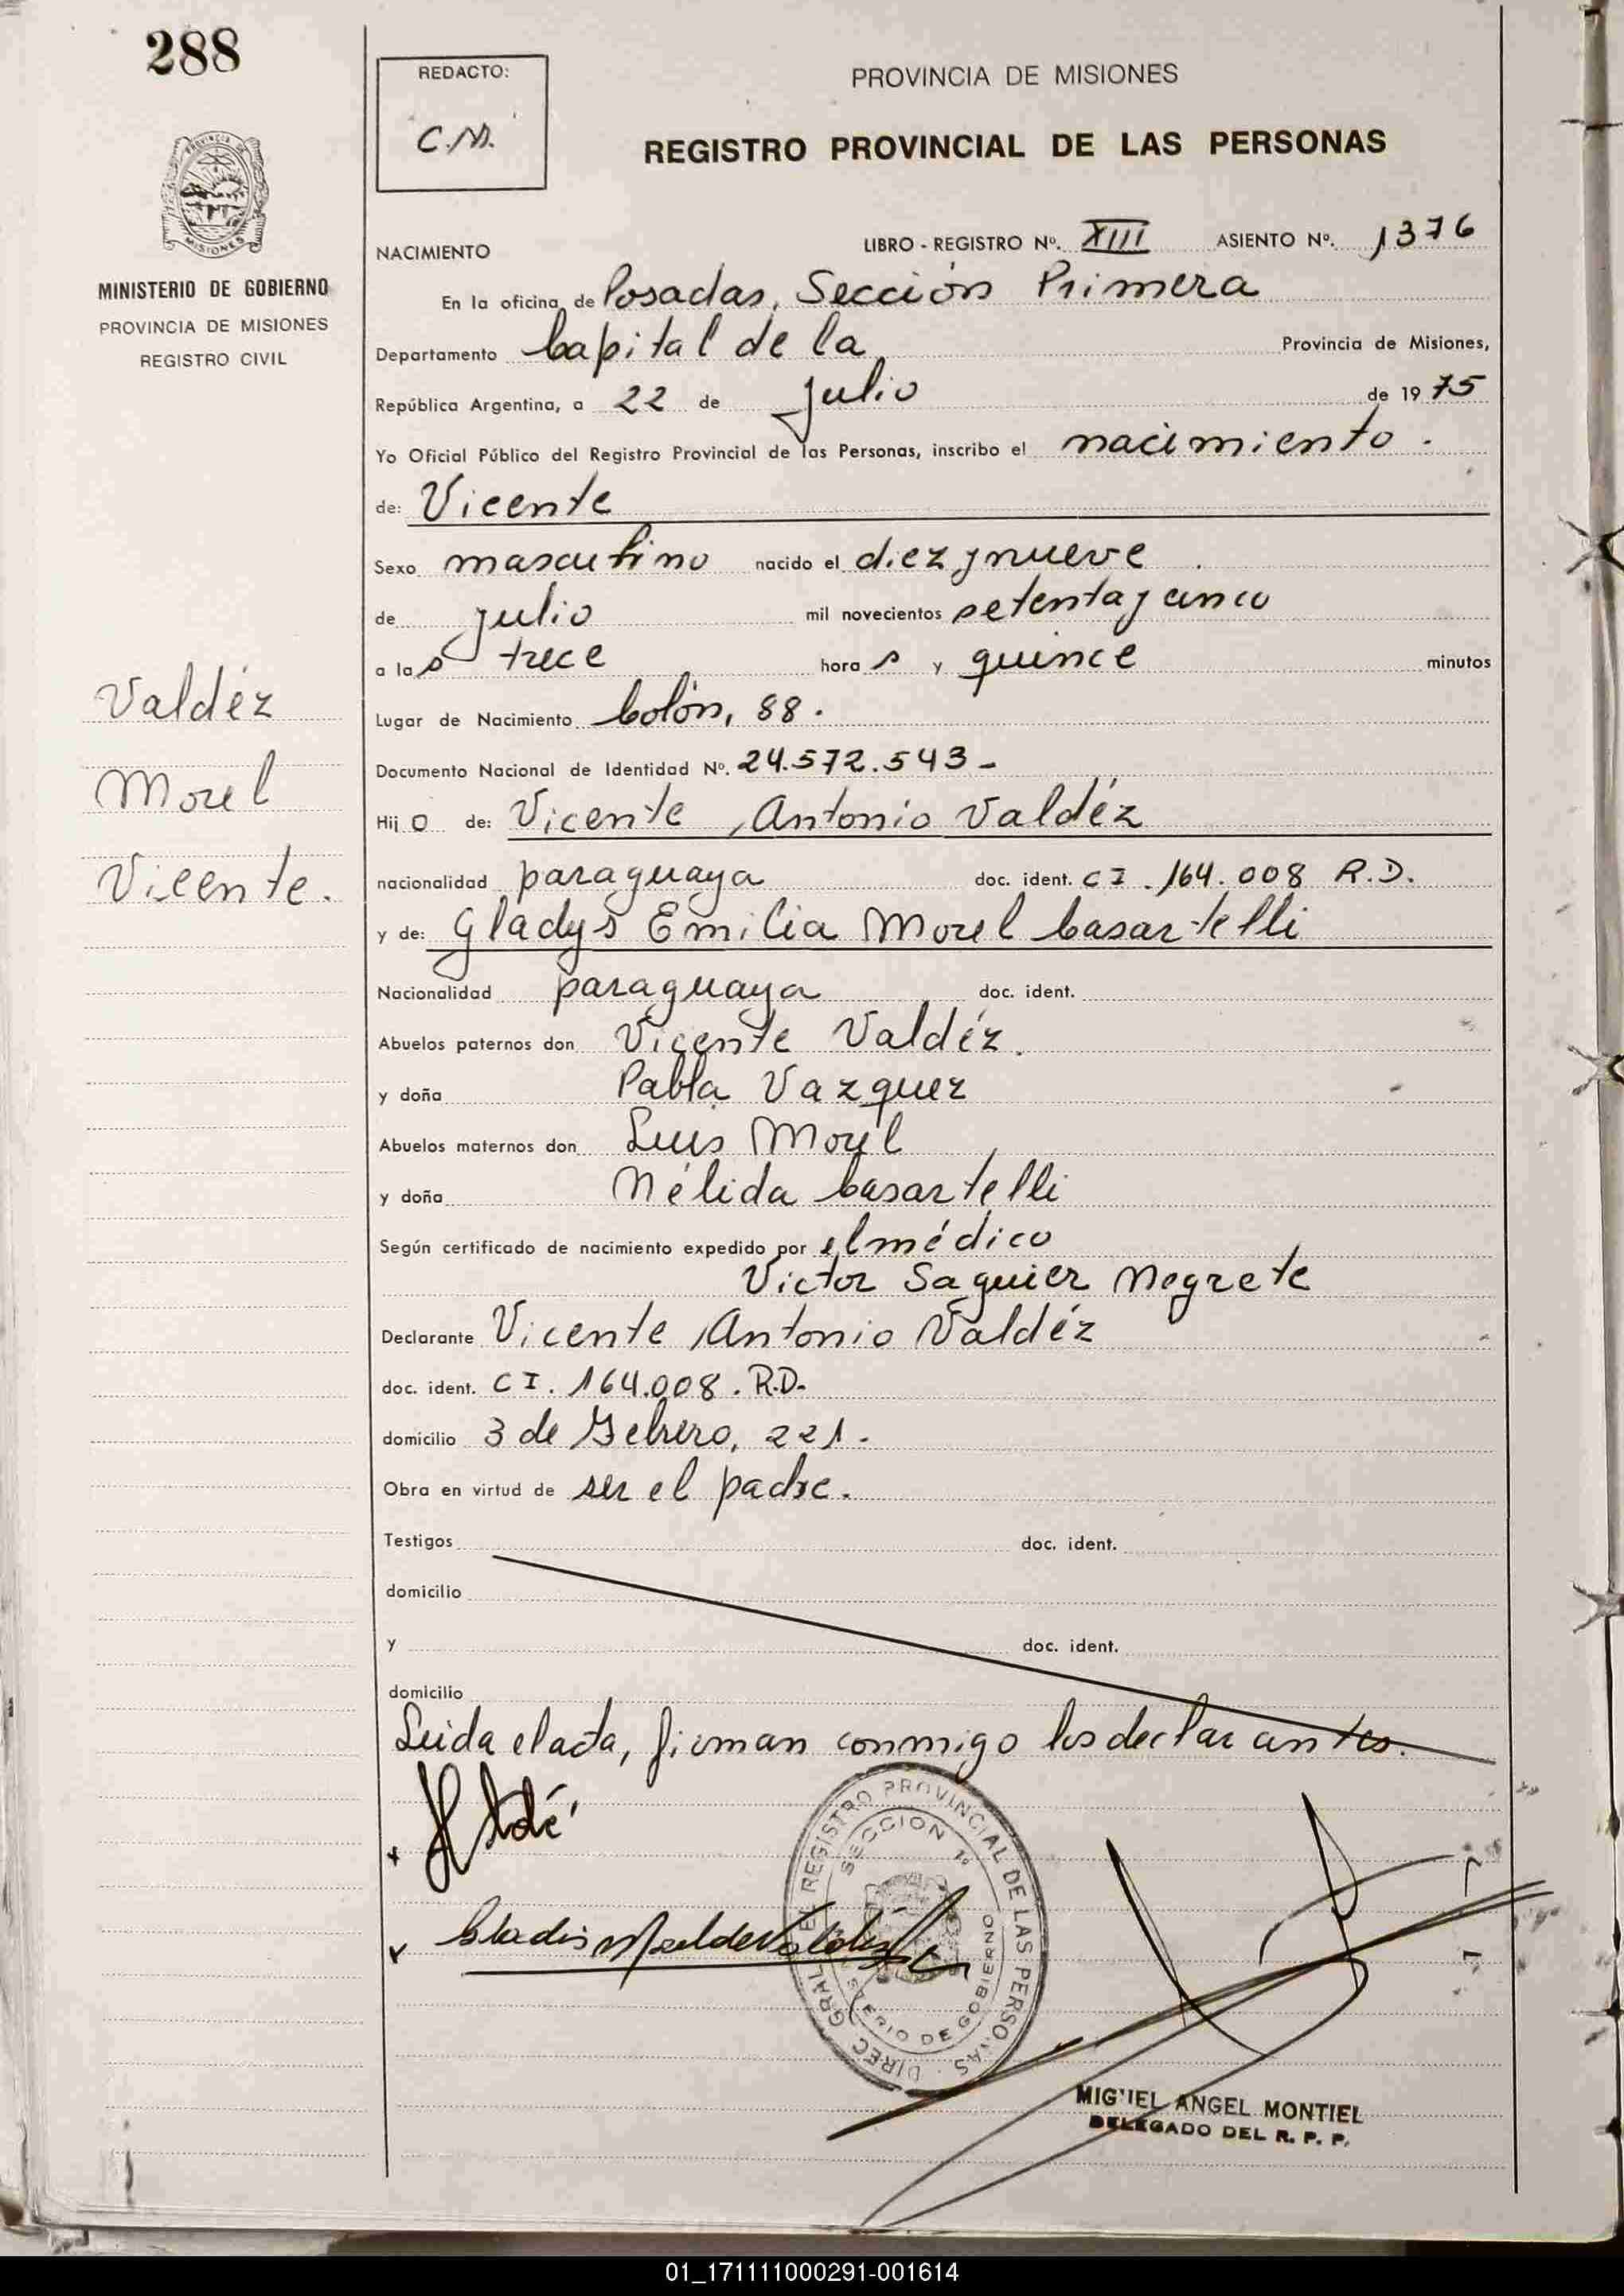 288
REDACTO:
C.M.
PROVINCIA DE MISIONES
REGISTRO PROVINCIAL DE LAS PERSONAS
PROVINCIA DE
MISIONES
MINISTERIO DE GOBIERNO
PROVINCIA DE MISIONES
REGISTRO CIVIL
NACIMIENTO LIBRO - REGISTRO Nº. XIII ASIENTO Nº. 1376
En la oficina de Posadas, Sección Primera
Departamento Capital de la Provincia de Misiones,
República Argentina, a 22 de Julio de 1975
Yo Oficial Público del Registro Provincial de las Personas, inscribo el nacimiento.
de: Vicente
Sexo masculino nacido el diez y nueve
de julio mil novecientos setenta y cinco
a las trece horas y quince minutos
Lugar de Nacimiento Colón, 88.
Documento Nacional de Identidad Nº. 24.572.543-
Hijo de: Vicente Antonio Valdéz
nacionalidad paraguaya doc. ident. CI. 164.008 R.D.
y de: Gladys Emilia Morel Casartelli
Nacionalidad paraguaya doc. ident.
Abuelos paternos don Vicente Valdéz.
y doña Pabla Vazquez
Abuelos maternos don Luis Morel
y doña Nélida Casartelli
Según certificado de nacimiento expedido por el médico
Victor Saguier Negrete
Declarante Vicente Antonio Valdéz
doc. ident. CI. 164.008. R.D.
domicilio 3 de Febrero, 221.
Obra en virtud de ser el padre.
Testigos doc. ident.
domicilio
y doc. ident.
domicilio
Leida el acta, firman conmigo los declarantes.
Valdéz
Morel
Vicente.
DIREC. GRAL. DEL REGISTRO PROVINCIAL DE LAS PERSONAS
SECCION 1º
MINISTERIO DE GOBIERNO
MIGUEL ANGEL MONTIEL
DELEGADO DEL R. P. P.
01_171111000291-001614